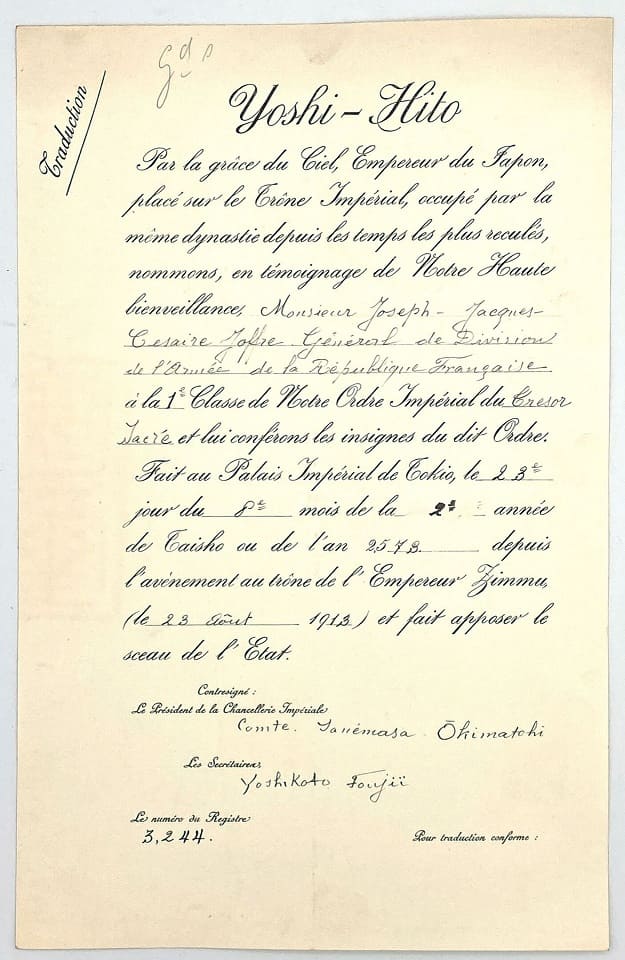 Traduction
Yoshi-Hito
Par la grâce du Ciel, Empereur du Japon,
placé sur le Trône Impérial, occupé par la
même dynastie depuis les temps les plus reculés,
nommons, en témoignage de Notre Haute
bienveillance, Monsieur Joseph-Jacques-
Cesaire Joffre Général de Division
de l'Armée de la République Française
à la 1e Classe de Notre Ordre Impérial du Tresor
Sacré et lui conférons les insignes du dit Ordre.
Fait au Palais Impérial de Tokio, le 23e
jour du 8e mois de la 2e année
de Taisho ou de l'an 2573 depuis
l'avénement au trône de l'Empereur Zimmu,
(le 23 Août 1913) et fait apposer le
sceau de l'Etat.
Contresigné :
Le Président de la Chancellerie Impériale
Comte Sanémasa Ōkimatchi
Les Secrétaires,
Yoshikoto Foujiï
Le numéro du Registre
3,244.
Pour traduction conforme :